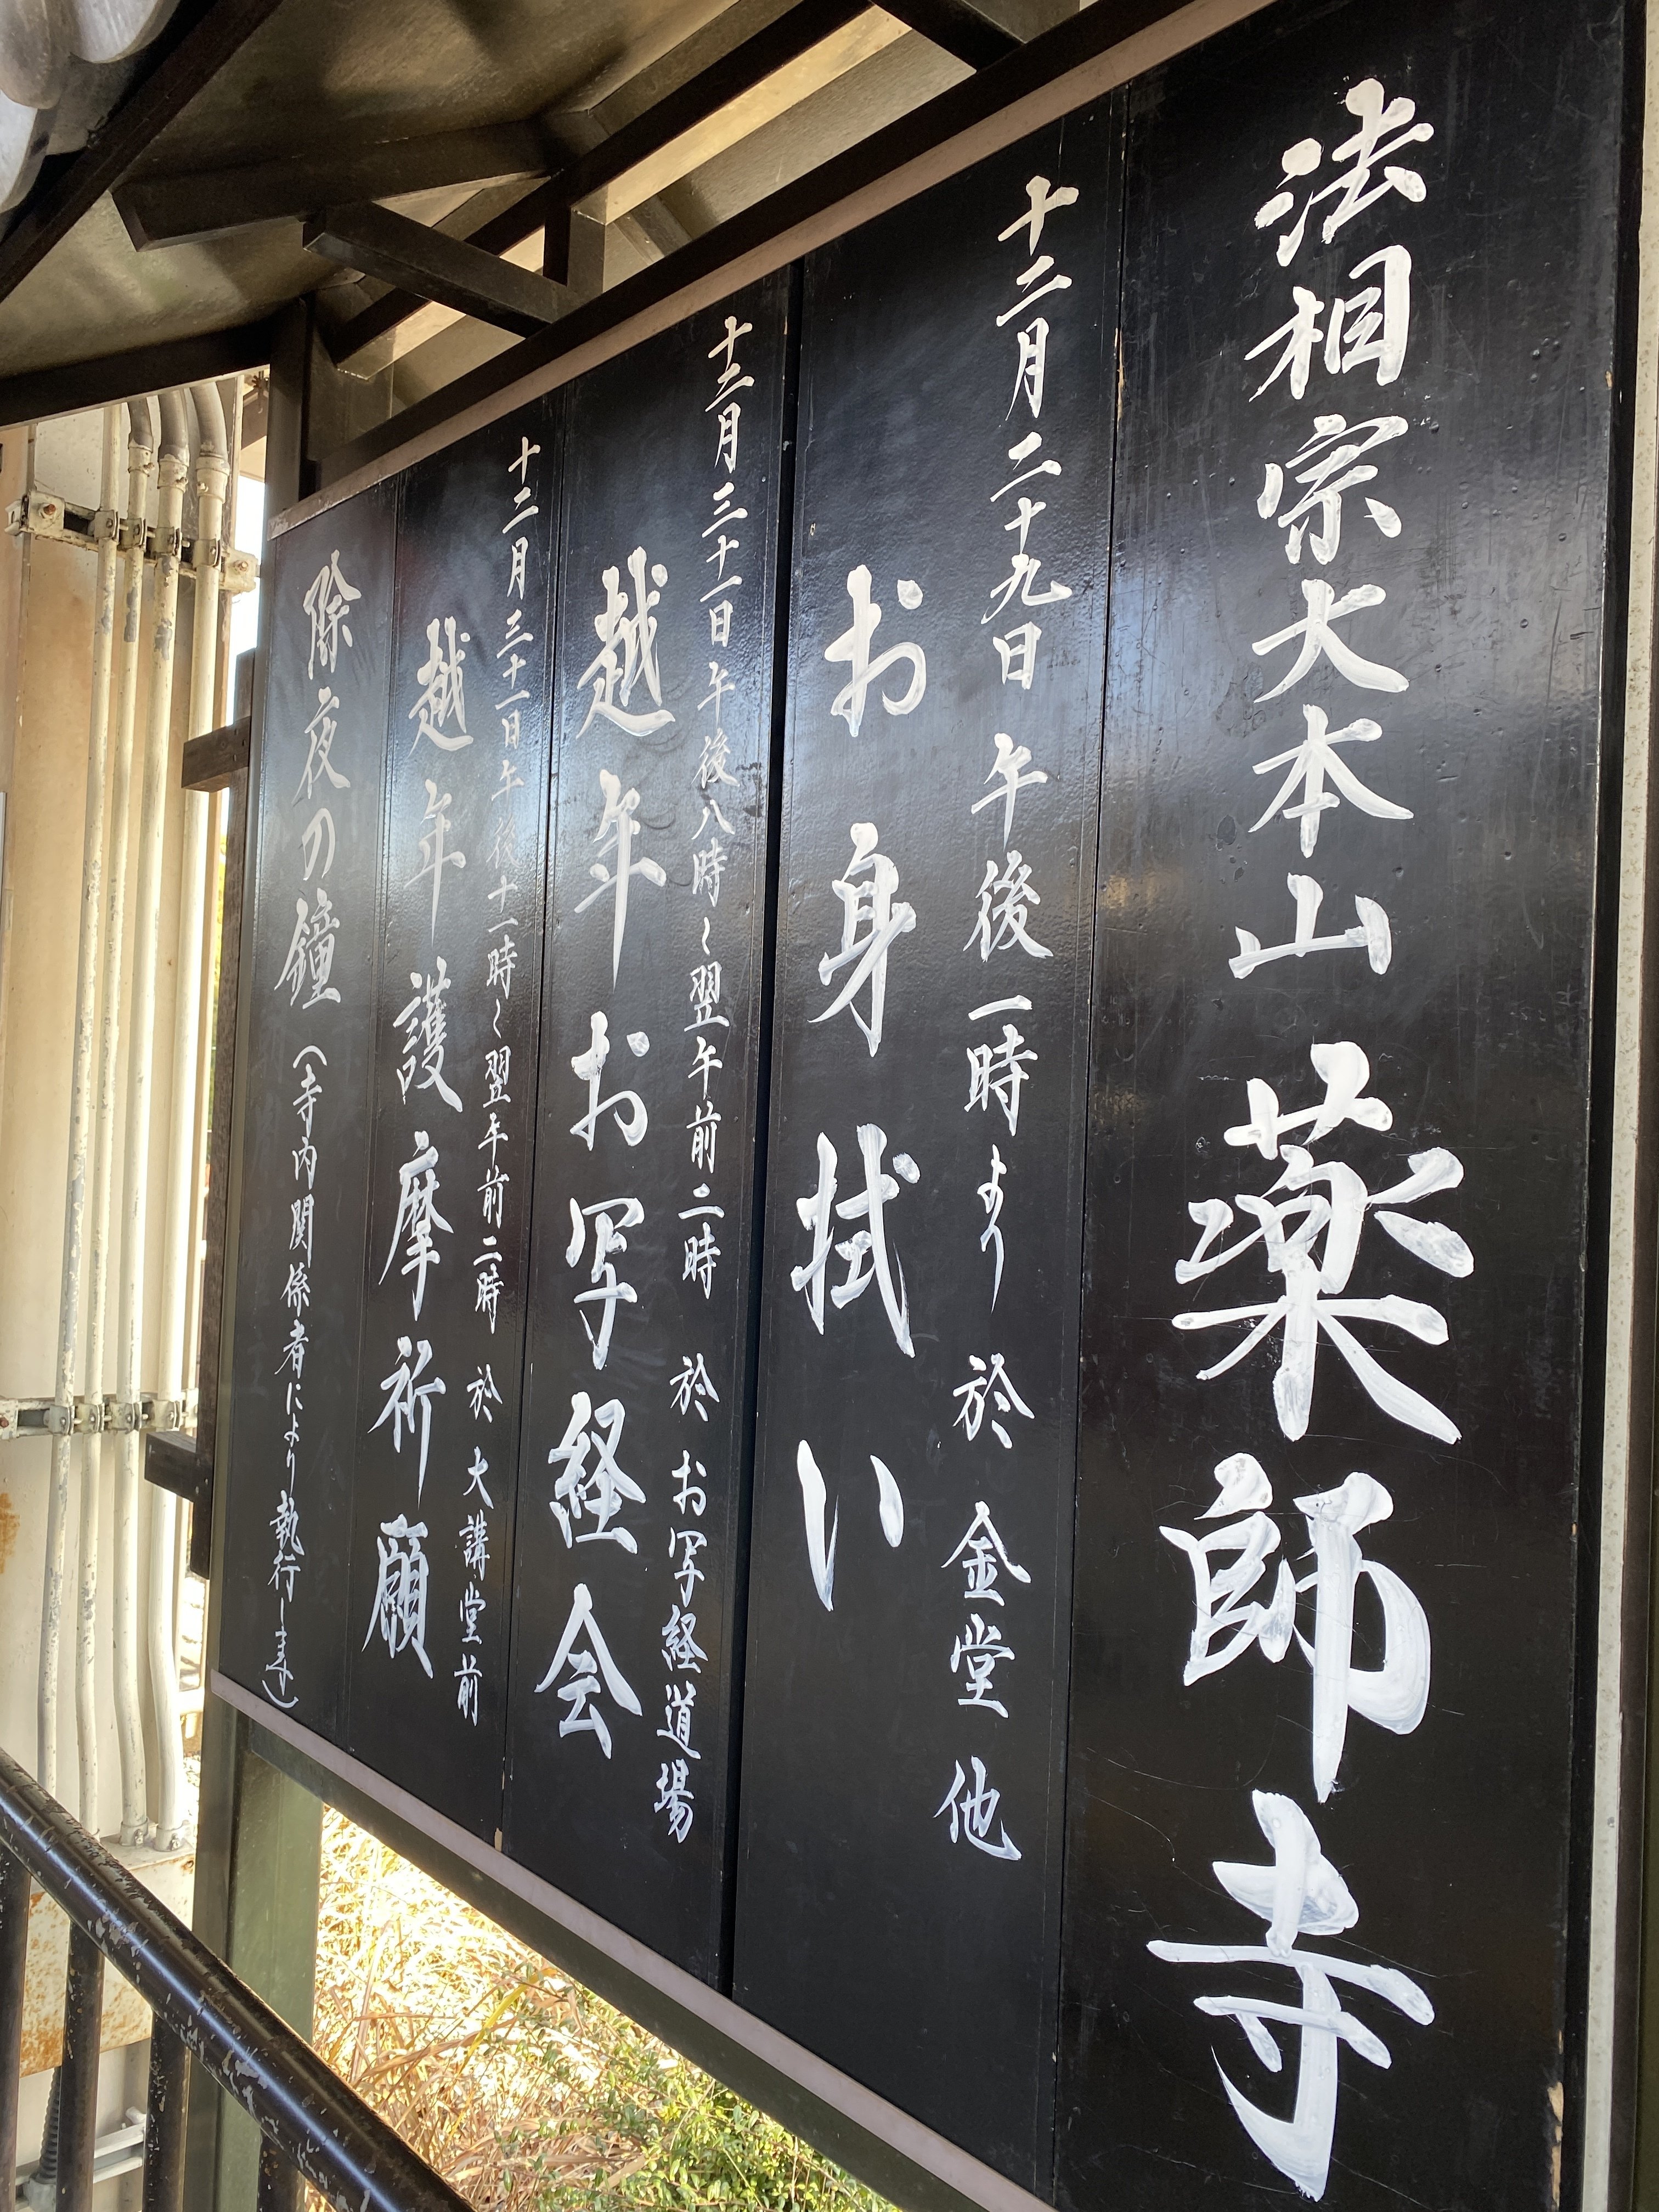 法相宗大本山 薬師寺
十二月二十九日 午後一時より 於 金堂 他
お身拭い
十二月三十一日 午後八時〜翌午前二時 於 お写経道場
越年お写経会
十二月三十一日 午後十一時〜翌午前二時 於 大講堂前
越年護摩祈願
除夜の鐘 (寺内関係者により執行します)